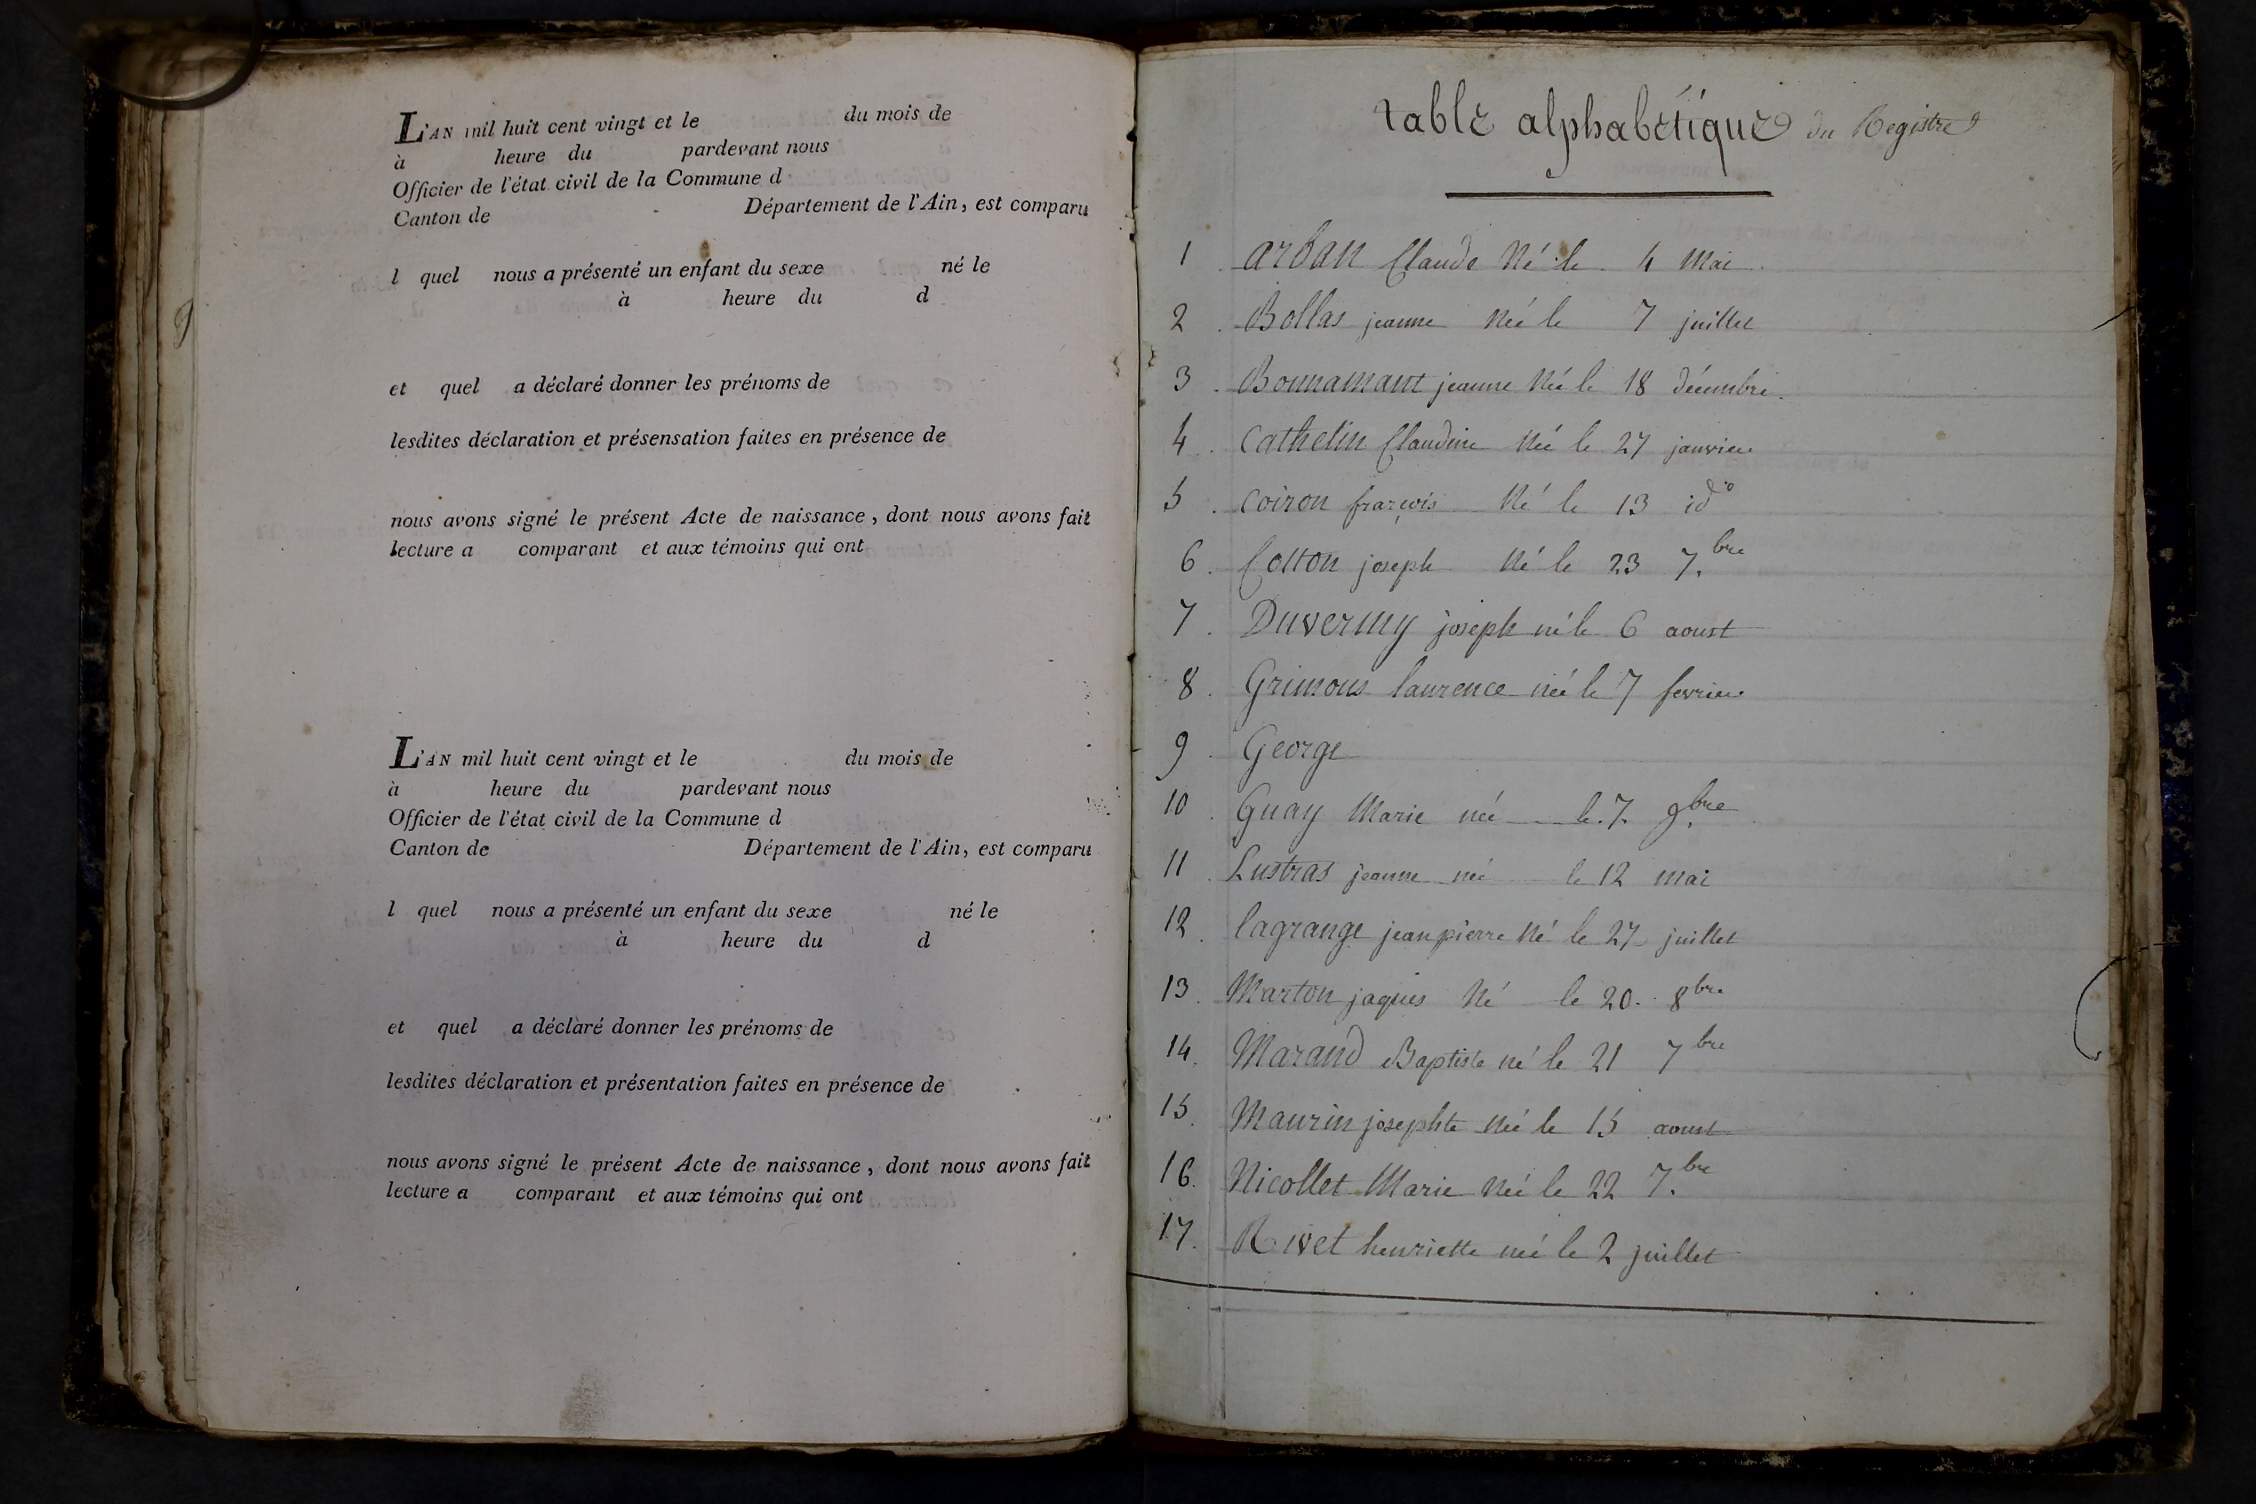 L'AN mil huit cent vingt et le du mois de
à heure du pardevant nous
Officier de l'état civil de la Commune d
Canton de Département de l'Ain, est comparu
l quel nous a présenté un enfant du sexe né le
à heure du d
et quel a déclaré donner les prénoms de
lesdites déclaration et présensation faites en présence de
nous avons signé le présent Acte de naissance, dont nous avons fait
lecture a comparant et aux témoins qui ont
L'AN mil huit cent vingt et le du mois de
à heure du pardevant nous
Officier de l'état civil de la Commune d
Canton de Département de l'Ain, est comparu
l quel nous a présenté un enfant du sexe né le
à heure du d
et quel a déclaré donner les prénoms de
lesdites déclaration et présentation faites en présence de
nous avons signé le présent Acte de naissance, dont nous avons fait
lecture a comparant et aux témoins qui ont
table alphabétique du Registre
1 arban Claude Né le 4 Mai
2 Bollas jeanne Née le 7 juillet
3 Bonnamant jeanne Née le 18 décembre
4 Cathelin Claudine Née le 27 janvier
5 coiron françois Né le 13 ido
6 Cotton joseph Né le 23 7.bre
7 Duverny joseph né le 6 aoust
8 Grimous laurence née le 7 fevrier
9 George
10 Guay Marie née le 7. 9bre
11 Lustras jeanne née le 12 mai
12 lagrange jean pierre Né le 27 juillet
13 Marton jaques Né le 20. 8bre
14. Marand Baptiste né le 21 7bre
15. Maurin josephte Née le 15 aoust
16. Nicollet Marie Née le 22 7.bre
17. Rivet henriette née le 2 juillet